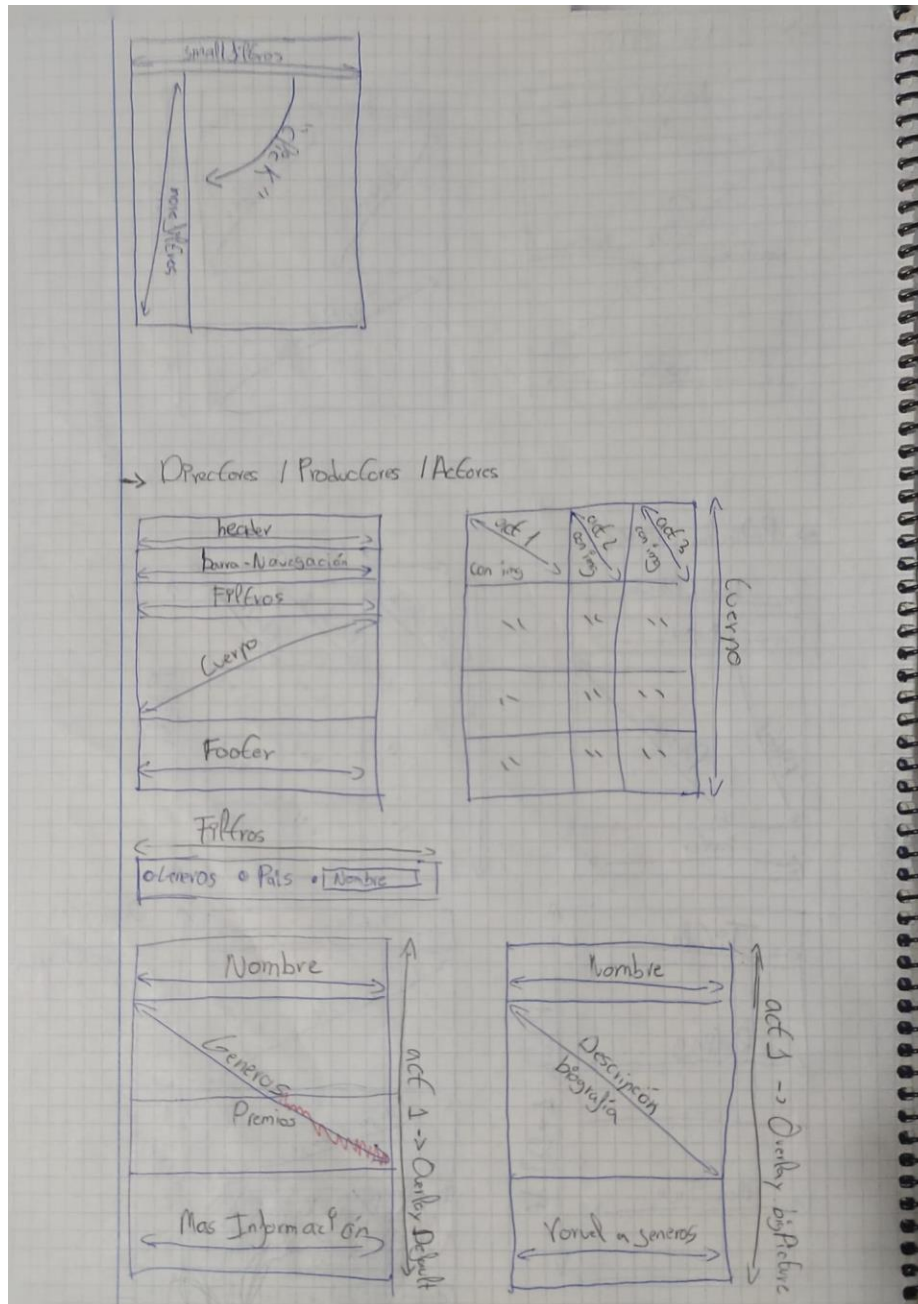 small filtros
"Click"
more filtros
→ Directores / Productores / Actores
header
barra-Navegación
Filtros
Cuerpo
Footer
act 1
con img
act 2
con img
act 3
con img
"
"
"
"
"
"
"
"
"
Cuerpo
Filtros
Generos
País
Nombre
Nombre
Generos
Premios
Mas Información
act 1 -> Overlay Default
Nombre
Descripción
biografía
a generos
act 1 -> Overlay bigPicture